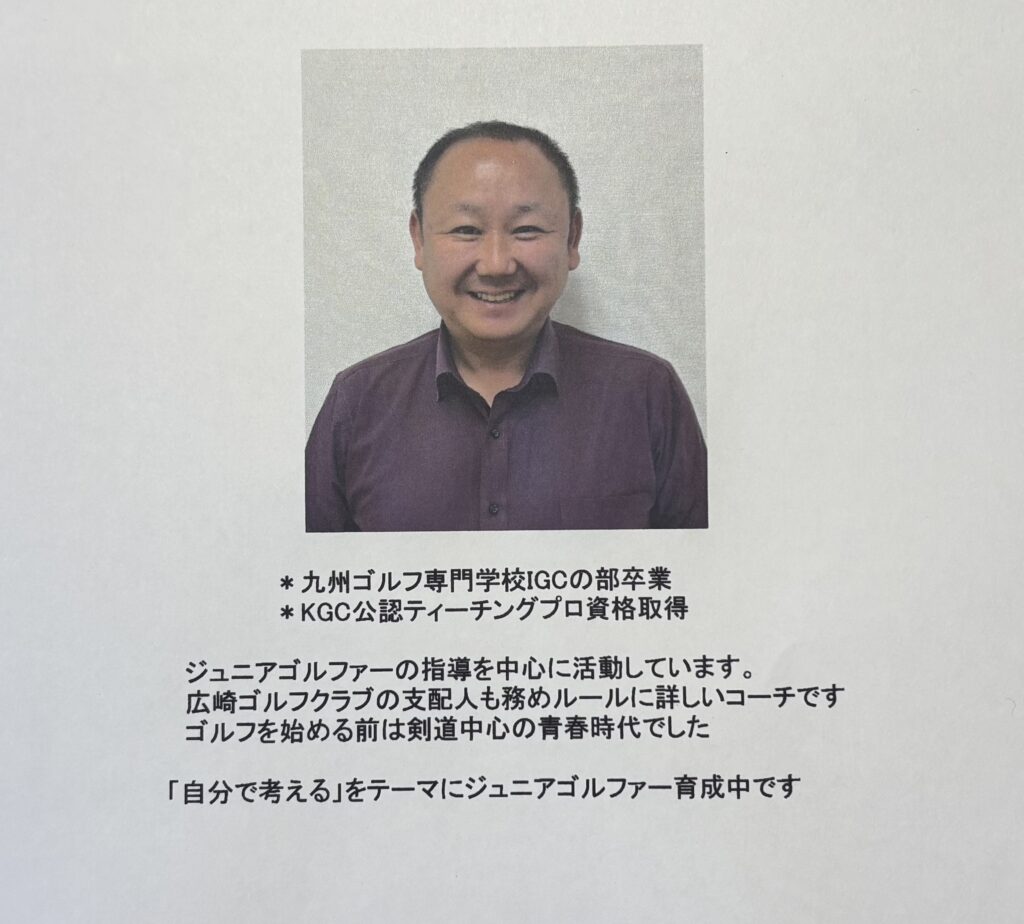 ＊九州ゴルフ専門学校IGCの部卒業
＊KGC公認ティーチングプロ資格取得
ジュニアゴルファーの指導を中心に活動しています。
広崎ゴルフクラブの支配人も務めルールに詳しいコーチです
ゴルフを始める前は剣道中心の青春時代でした
「自分で考える」をテーマにジュニアゴルファー育成中です